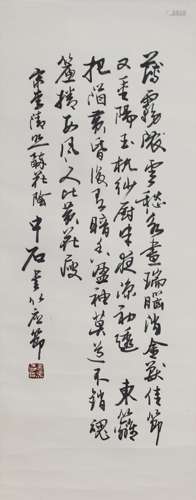 薄霧濃雲愁永晝瑞腦消金獸佳節
又重陽玉枕紗厨半夜凉初透東籬
把酒黃昏後有暗香盈袖莫道不銷魂
簾捲西風人比黃花瘦
宋李清照醉花陰
中石書以應節